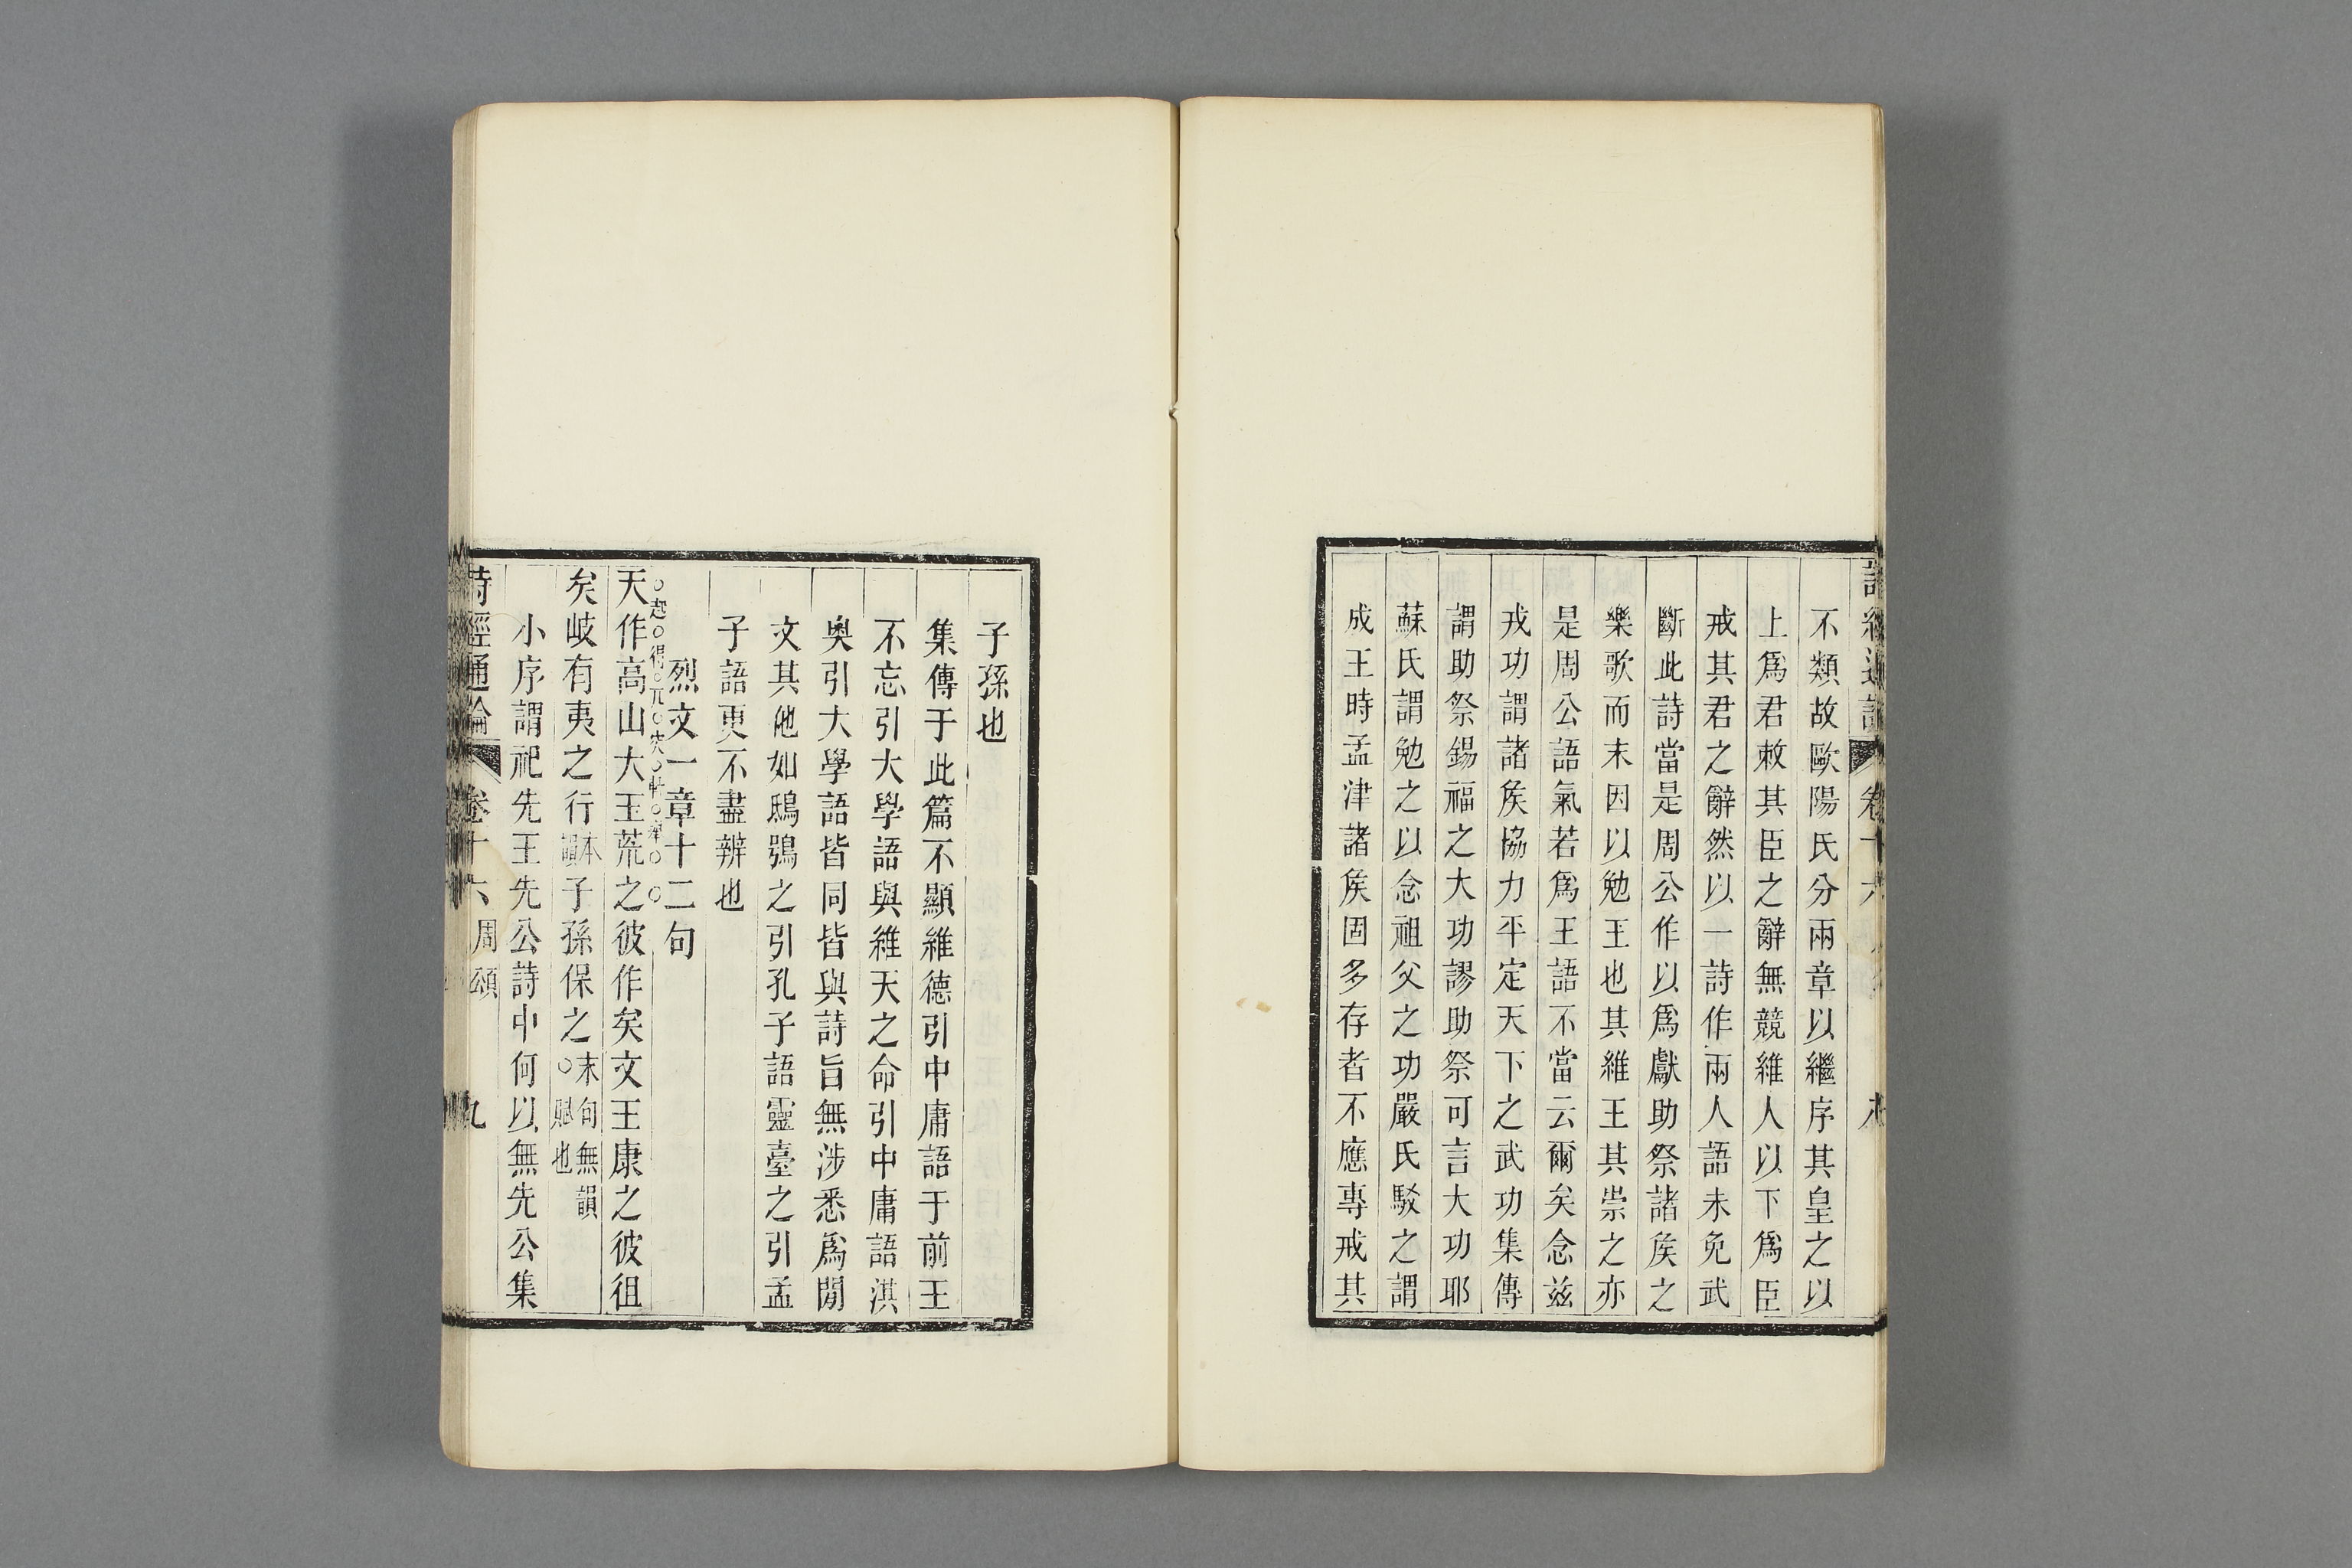 不類故歐陽氏分兩章以繼序其皇之以
上爲君敕其臣之辭無競維人以下爲臣
戒其君之辭然以一詩作兩人語未免武
斷此詩當是周公作以爲獻助祭諸矦之
樂歌而末因以勉王也其維王其崇之亦
是周公語氣若爲王語不當云爾矣念兹
戎功謂諸矦協力平定天下之武功集傳
謂助祭錫福之大功謬助祭可言大功耶
蘇氏謂勉之以念祖父之功嚴氏駁之謂
成王時孟津諸矦固多存者不應專戒其
子孫也
集傳于此篇不顯維德引中庸語于前王
不忘引大學語與維天之命引中庸語淇
奧引大學語皆同皆與詩旨無涉悉爲閒
文其他如鴟鴞之引孔子語靈臺之引孟
子語更不盡辨也
烈文一章十二句
起得兀突
天作高山大王荒之彼作矣文王康之彼徂
矣岐有夷之行本韻子孫保之末句無韻○賦也
小序謂祀先王先公詩中何以無先公集
詩經通論 卷十六 周頌 九